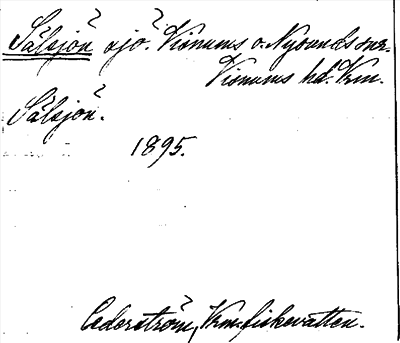 Sälsjön sjö. Visnums o. Nysunds snr.
Visnums hd. Vrm.
Sälsjön.
1895.
Cederström, Vrm. fiskevatten.